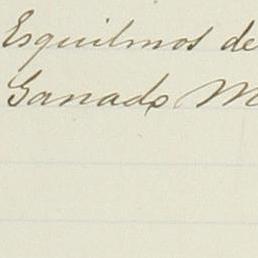 Esquilmos de
Ganado M